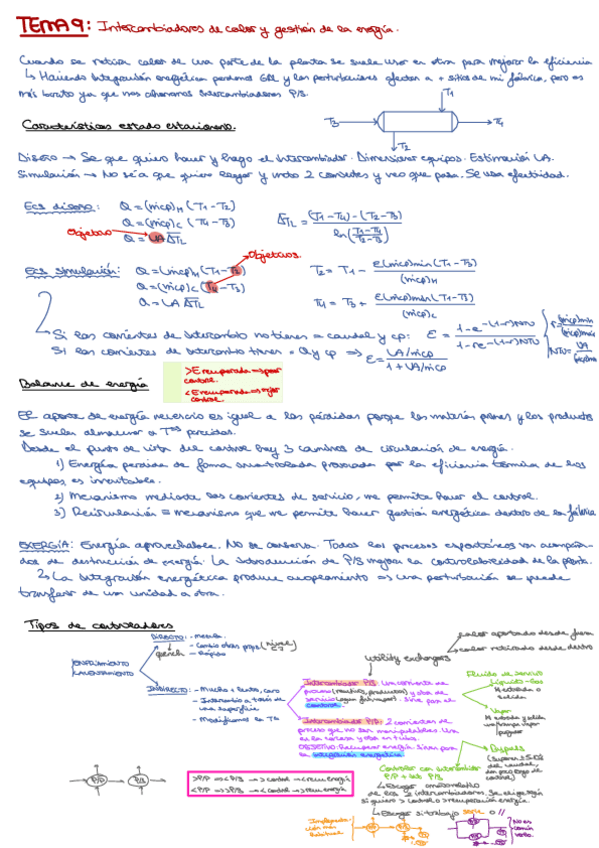 TEMA 9: Intercambiadores de calor y gestión de la energía.
Cuando se retira calor de una parte de la planta se suele usar en otra para mejorar la eficiencia
↳ Haciendo integración energética perdemos GDL y las perturbaciones afectan a + sitios de mi fábrica, pero es
más barato ya que nos ahorramos intercambiadores P/S.
Características estado estacionario.
T1
T3
T4
T2
Diseño → Sé que quiero hacer y hago el intercambiador. Dimensionar equipos. Estimación UA.
Simulación → No sé a que quiero llegar y meto 2 corrientes y veo que pasa. Se usa efectividad.
Ecs diseño: Q = (ṁcp)H (T1-T2)
Q = (ṁcp)C (T4-T3)
Objetivo
Q = UA ΔTL
ΔTL = (T1-T4) - (T2-T3) / ln(T1-T4 / T2-T3)
Objetivos.
Ecs simulación: Q = (ṁcp)H (T1-T2)
Q = (ṁcp)C (T4-T3)
Q = UA ΔTL
T2 = T1 - E(ṁcp)min(T1-T3) / (ṁcp)H
T4 = T3 + E(ṁcp)min(T1-T3) / (ṁcp)C
Si las corrientes de intercambio no tienen = caudal y cp: E = 1-e^-(1-r)NTU / 1-re^-(1-r)NTU
Si las corrientes de intercambio tienen = Q y cp ⇒ E = UA/ṁcp / 1+UA/ṁcp
>E recuperada ⇒ peor
control.
<E recuperada ⇒ mejor
control
Balance de energía
El aporte de energía necesario es igual a las pérdidas porque las materias primas y los productos
se suelen almacenar a Tas parecidas.
Desde el punto de vista del control hay 3 caminos de circulación de energía.
1) Energía perdida de forma incontrolada provocada por la eficiencia térmica de los
equipos, es inevitable.
2) Mecanismo mediante las corrientes de servicio, me permite hacer el control.
3) Recirculación = mecanismo que me permite hacer gestión energética dentro de la fábrica
EXERGÍA: Energía aprovechable. No se conserva. Todos los procesos espontáneos van acompaña-
dos de destrucción de exergía. La introducción de P/S mejora la controlabilidad de la planta.
↳ La integración energética produce acoplamiento ⇒ una perturbación se puede
transferir de una unidad a otra.
Tipos de controladores
DIRECTO: - mezcla
- Cambio otras props (nivel
quench - Rápido
ENFRIAMIENTO
CALENTAMIENTO
INDIRECTO: - Mucho + lento, caro
- Intercambio a través de
una superficie
- Modificamos la Ta
utility exchangers
calor aportado desde fuera
calor retirado desde dentro
Intercambiador P/S. Una corriente de
proceso (reactivos, productos) y otra de
servicio. Sirve para el
control.
Intercambiador P/P: 2 corrientes de
proceso que no son manipulables. Una
es la carcasa y otra en tubos.
OBJETIVO: Recuperar energía. Sirven para
la integración energética
Fluido de servicio
Líquido-Gas
M entrada o
salida
Vapor
M entrada y salida
Bypass
del caudal,
control)
P/P + ← P/S
>P/P ⇒ <P/S → >control → <recu energía
<P/P ⇒ >P/S → <control → >recu energía
↳ Escoger si trabajo serie o //
ción más
habitual
No es
común
verlo.